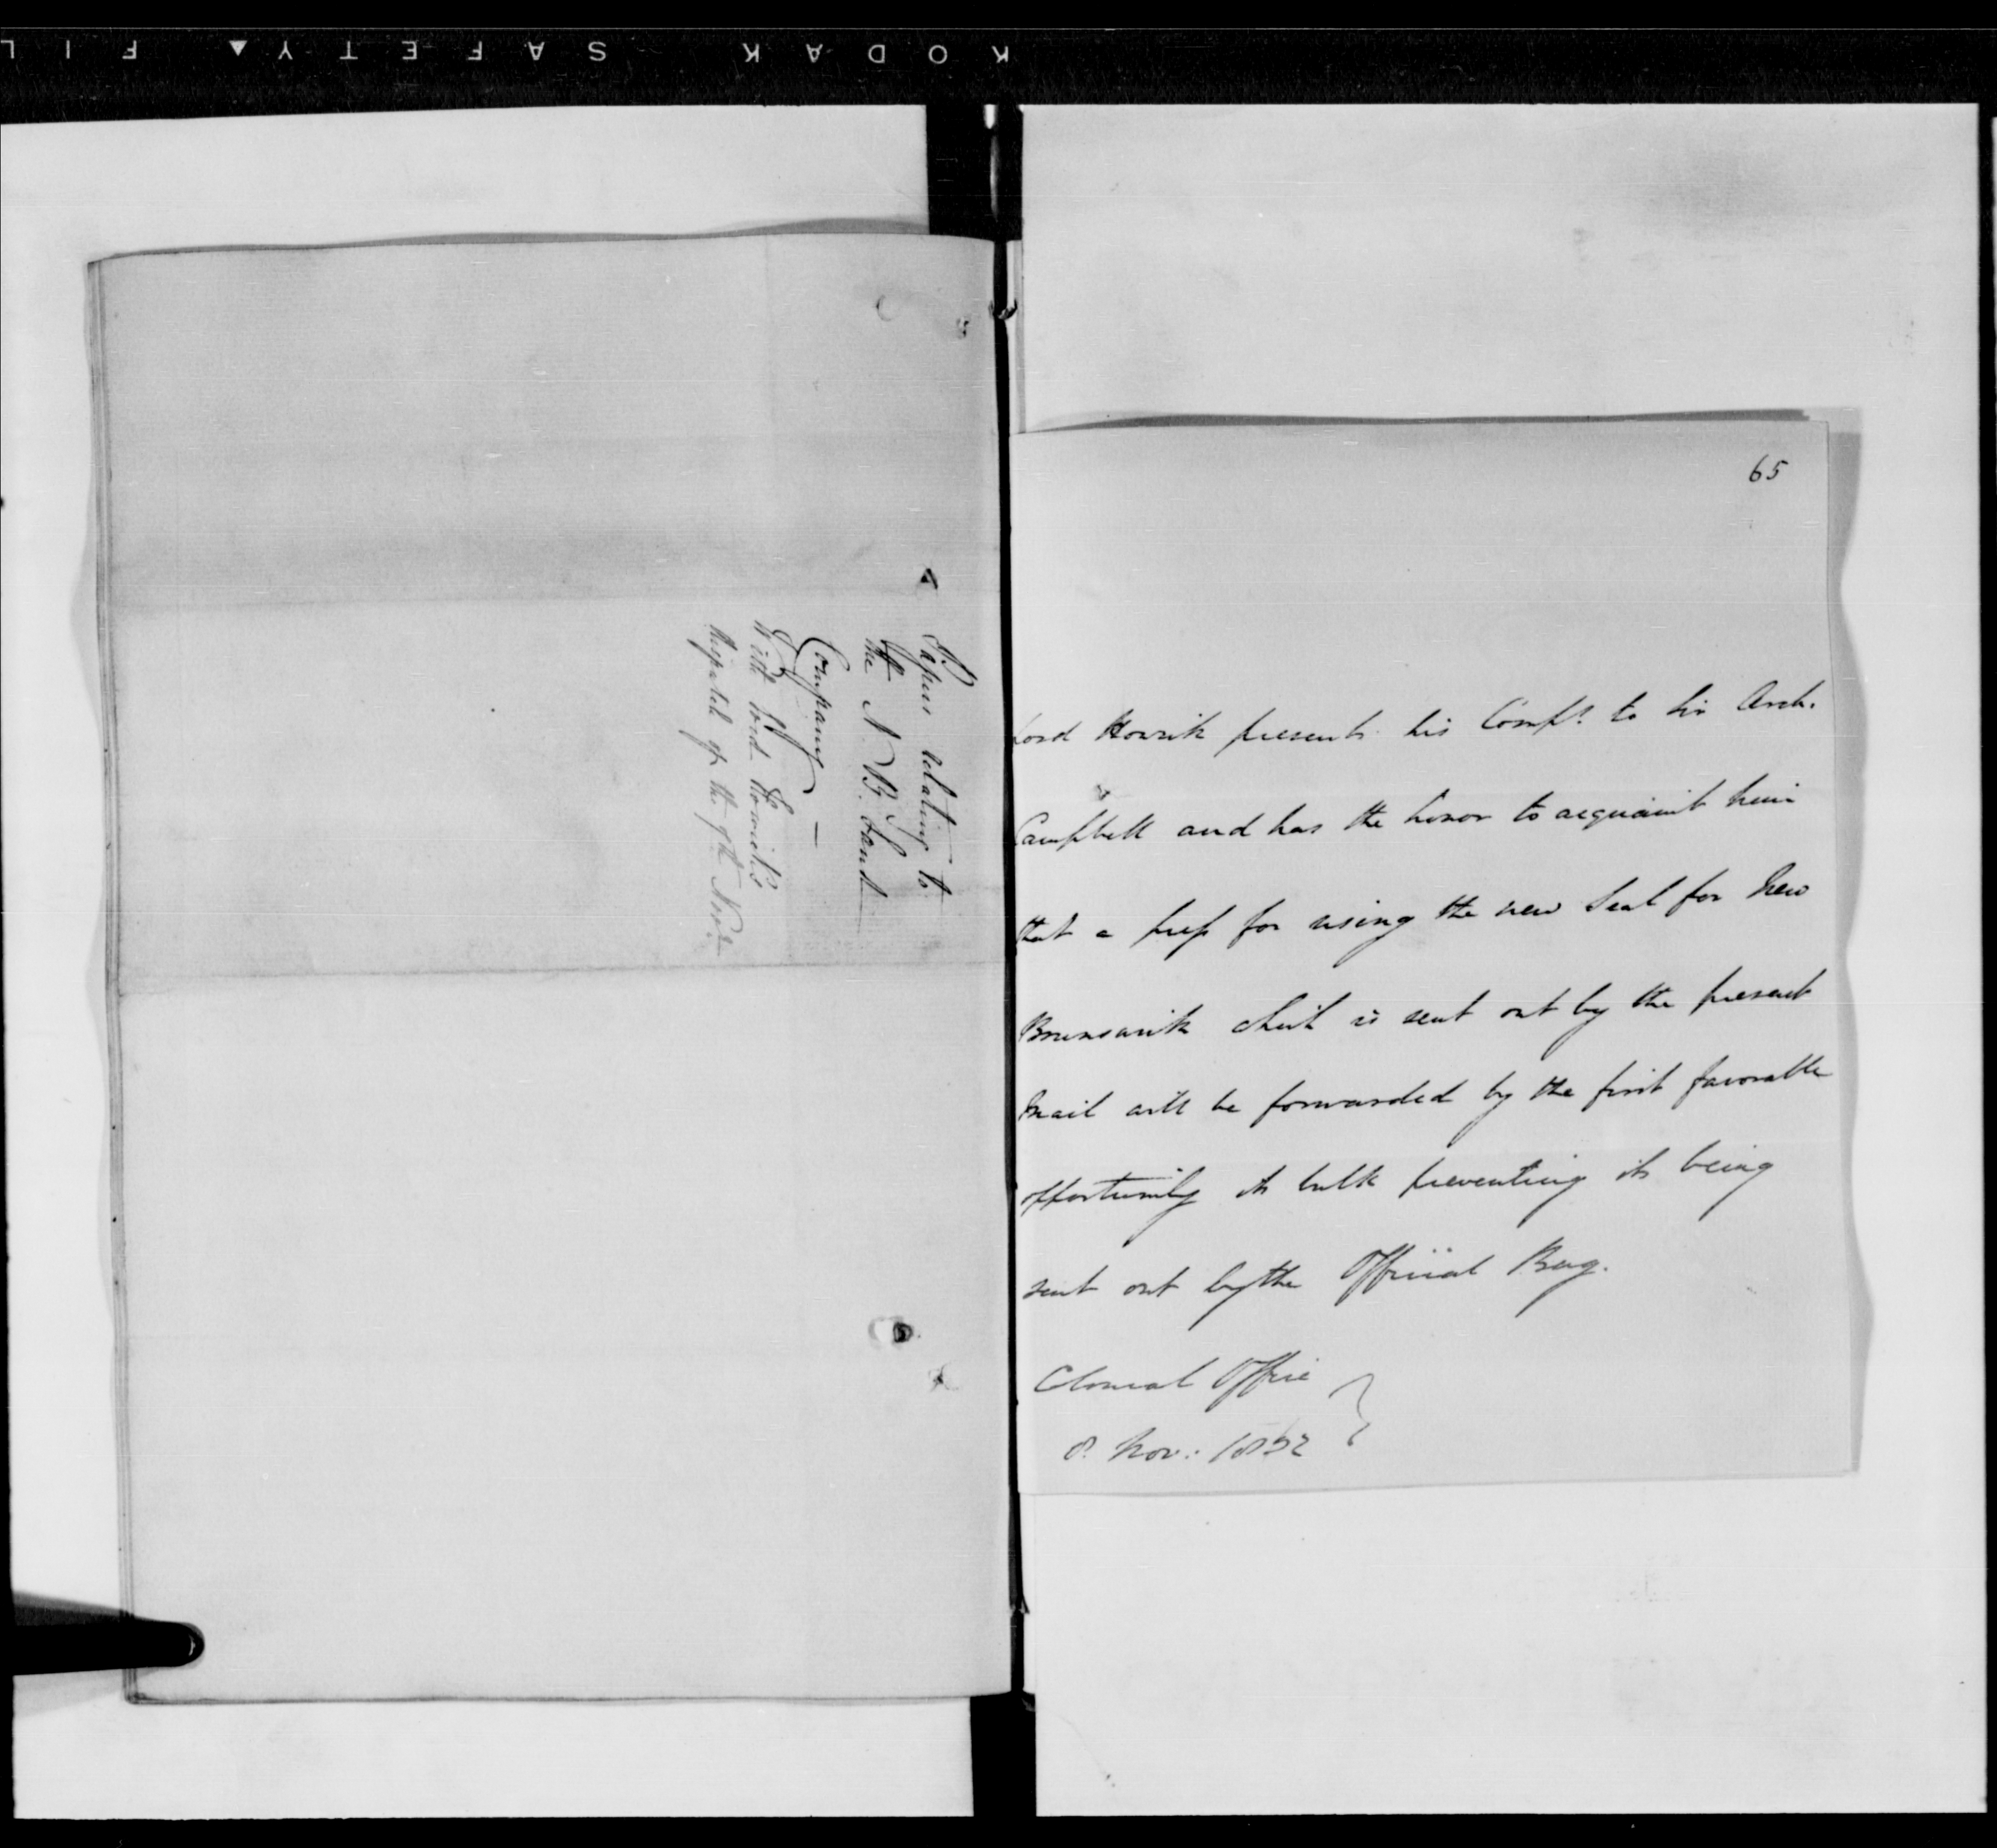 KODAK SAFETY FIL
Papers relating to
the N. B. Land
Company —
With Lord Howick's
despatch of the 9th Novr
65
Lord Howick presents his Compts. to Sir Arch.
Campbell and has the honor to acquaint him
that a press for using the new Seal for New
Brunswick which is sent out by the present
Mail will be forwarded by the first favorable
opportunity its bulk preventing its being
sent out by the Official Bag.
Colonial Office
8. Nov: 1832